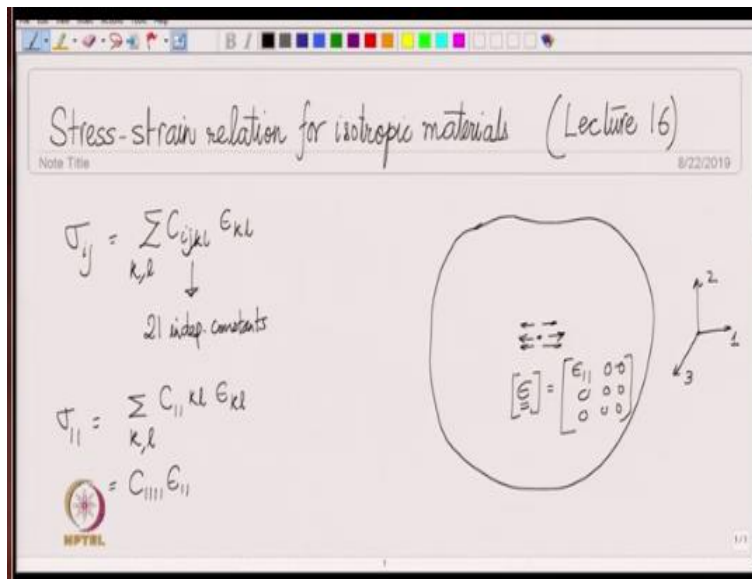 B I
Stress-strain relation for isotropic materials (Lecture 16)
Note Title
8/22/2019
σij = Σ Cijkl εkl
k,l
↓
21 indep. constants
σ11 = Σ C11kl εkl
k,l
= C1111 ε11
[ε] = [ε11 0 0
0 0 0
0 0 0]
2
1
3
NPTEL
1/1